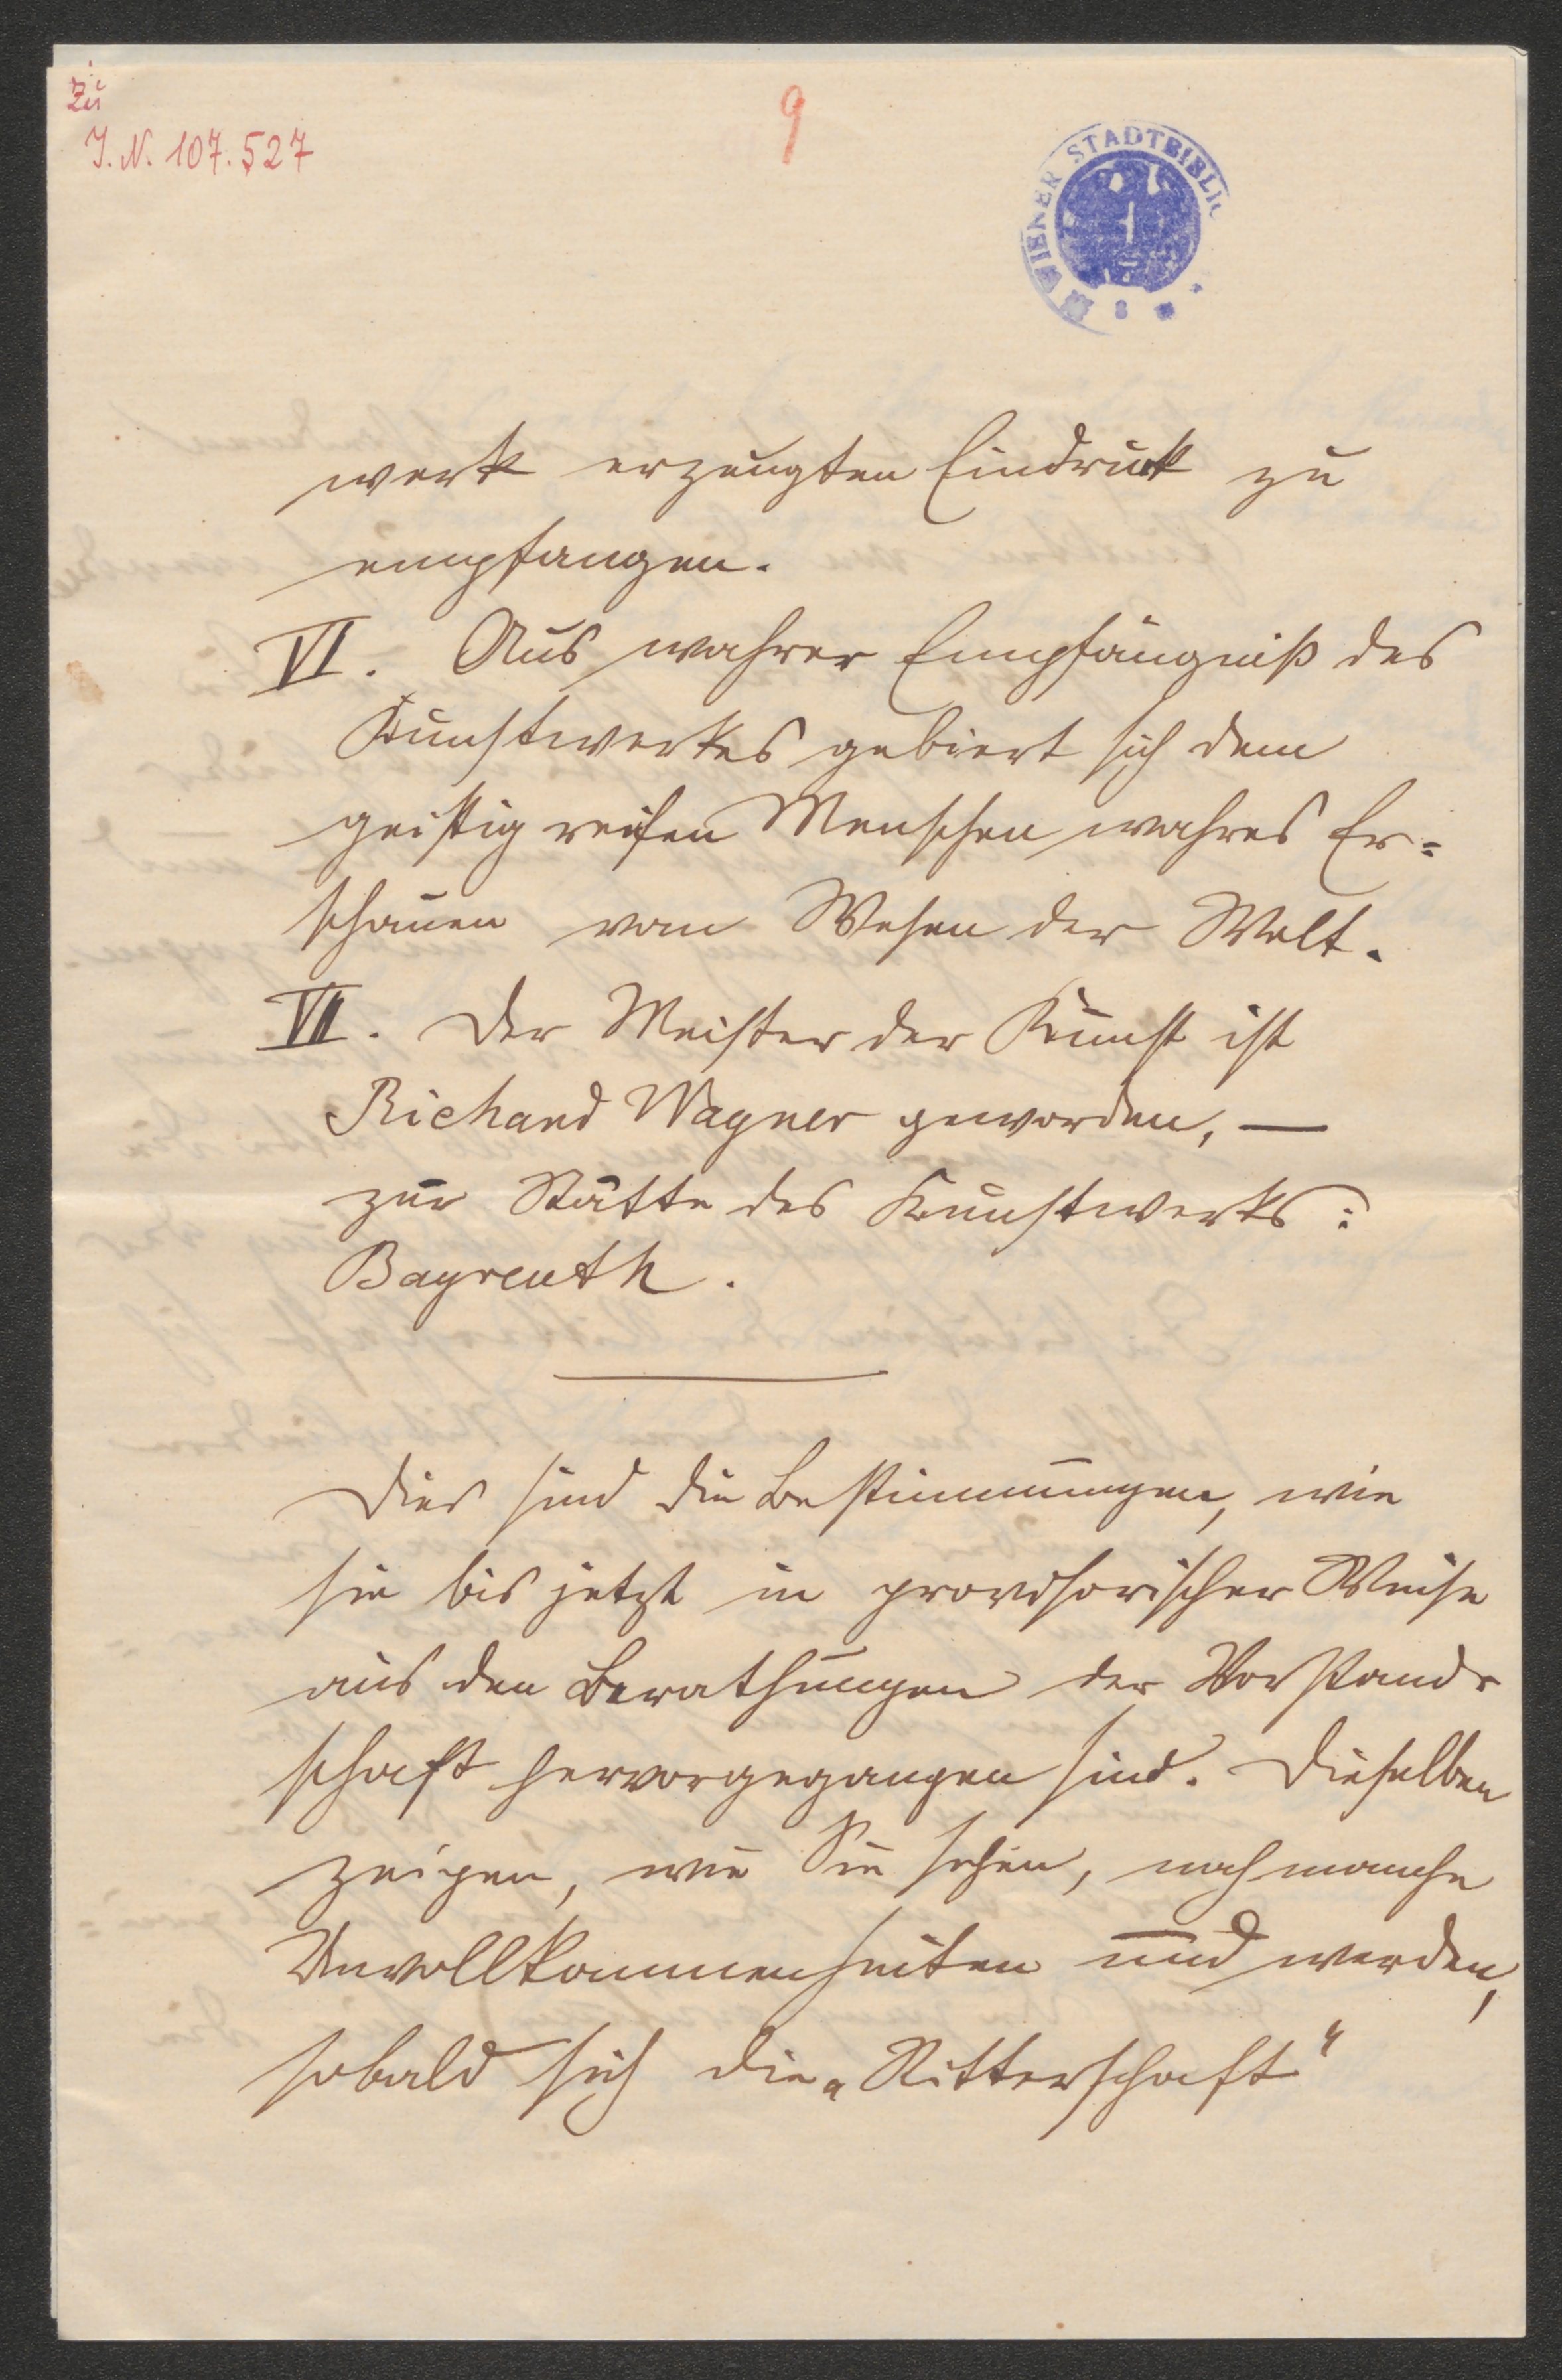 zu
I. N. 107.527
9
WIENER STADTBIBLIO
werk erzeugten Eindruck zu
empfangen.
VI. Aus wahrer Empfängniß des
Kunstwerkes gebiert sich dem
geistig reifen Menschen wahres Er=
schauen vom Wesen der Welt.
VII. Der Meister der Kunst ist
Richard Wagner geworden, —
zur Stätte des Kunstwerks:
Bayreuth.
Dies sind die Bestimmungen, wie
sie bis jetzt in provisorischer Weise
aus den Berathungen der Vorstand-
schaft hervorgegangen sind. Dieselben
zeigen, wie Sie sehen, noch manche
Unvollkommenheiten und werden,
sobald sich die „Ritterschaft“